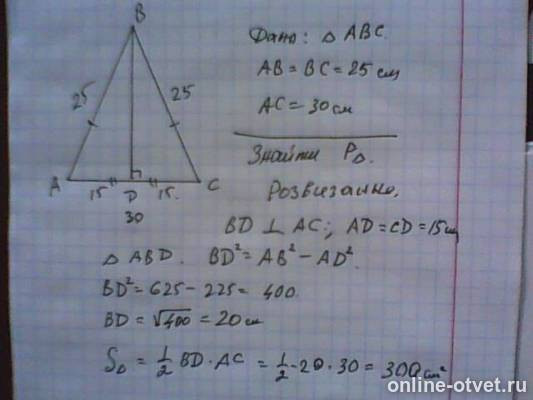 B
25 25
A 15 D 15. C
30
Дано: △ ABC.
AB = BC = 25 см
AC = 30 см
Знайти P△.
Розвязання.
BD ⊥ AC; AD = CD = 15 см
△ ABD. BD² = AB² − AD².
BD² = 625 − 225 = 400.
BD = √400 = 20 см
S△ = 1/2 BD · AC = 1/2 · 20 · 30 = 300 см²
online-otvet.ru